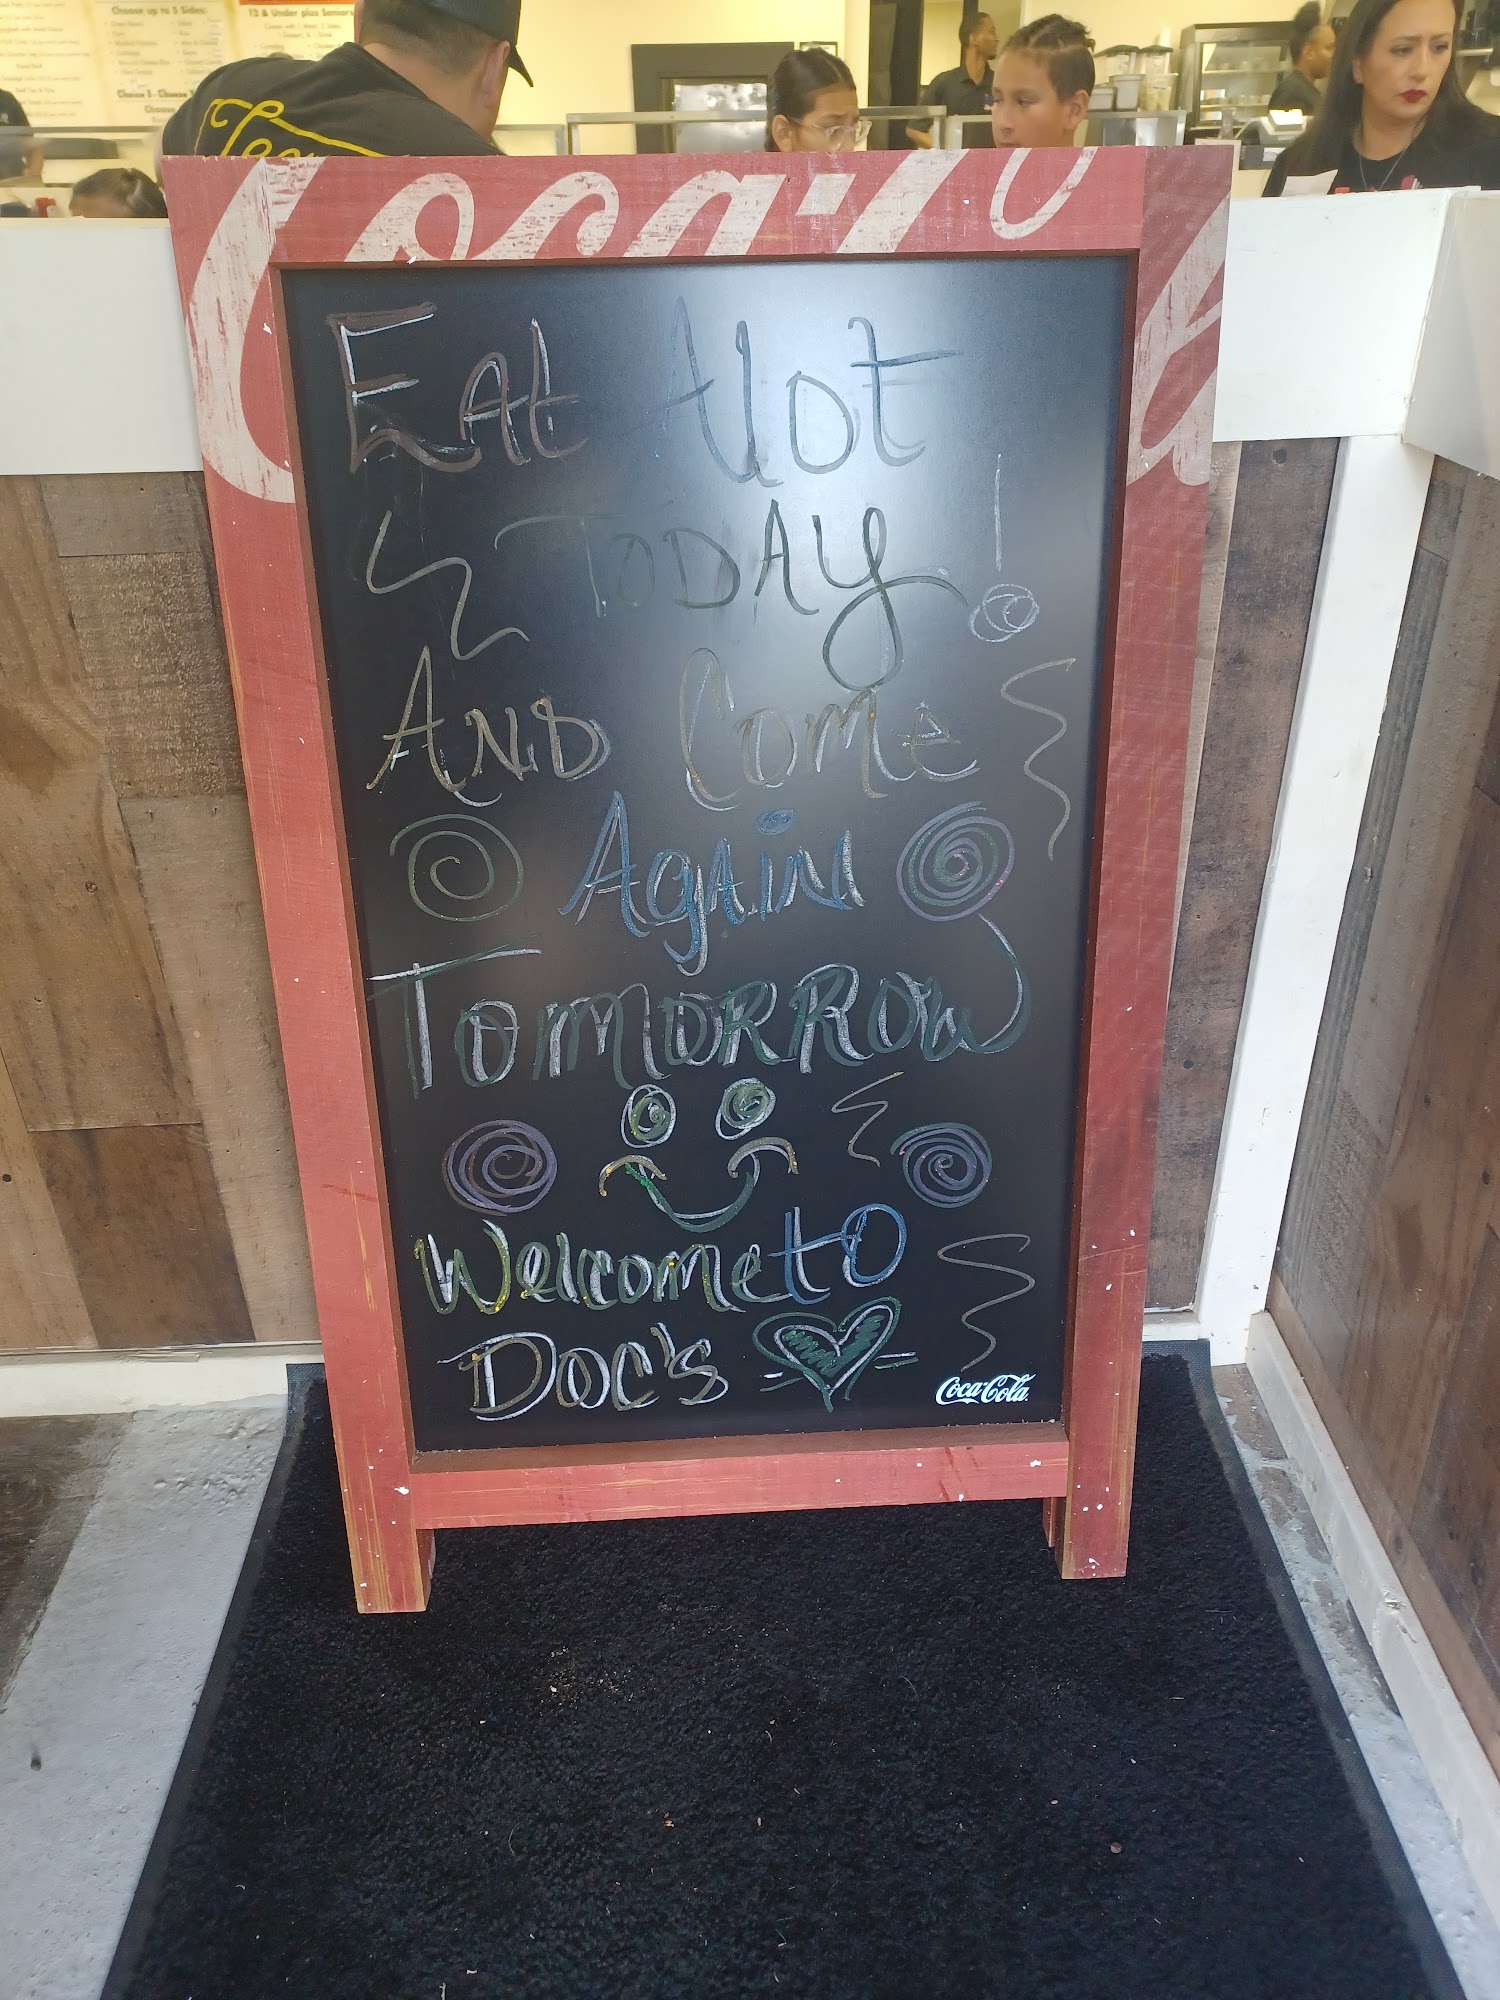 Choose up to 5 Sides:
12 & Under plus Seniors
Coca-Co
Eat Alot
Today!
And Come
Again
Tomorrow
Welcome to
Doc's
Coca-Cola